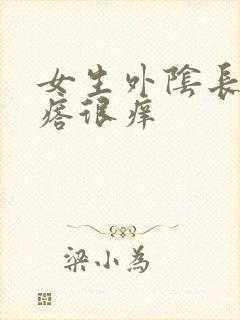 女生外陰長
痞很痒
梁小為